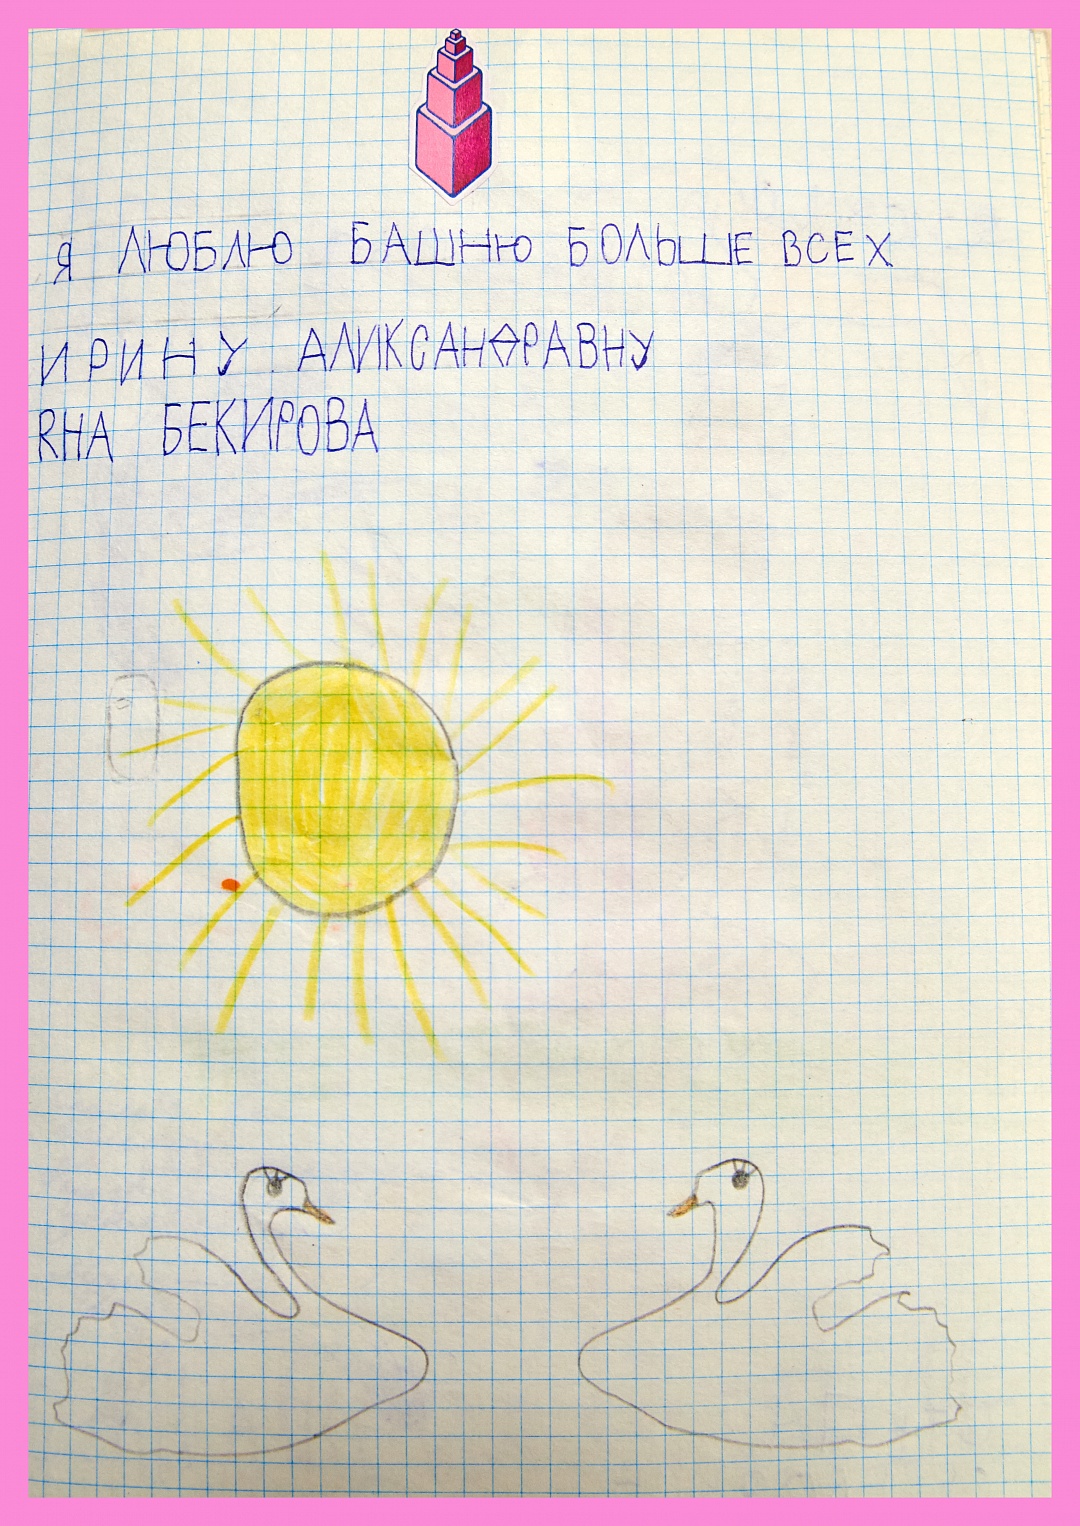 Я ЛЮБЛЮ БАШНЮ БОЛЬШЕ ВСЕХ
ИРИНУ АЛИКСАНДРАВНУ
ЯНА БЕКИРОВА